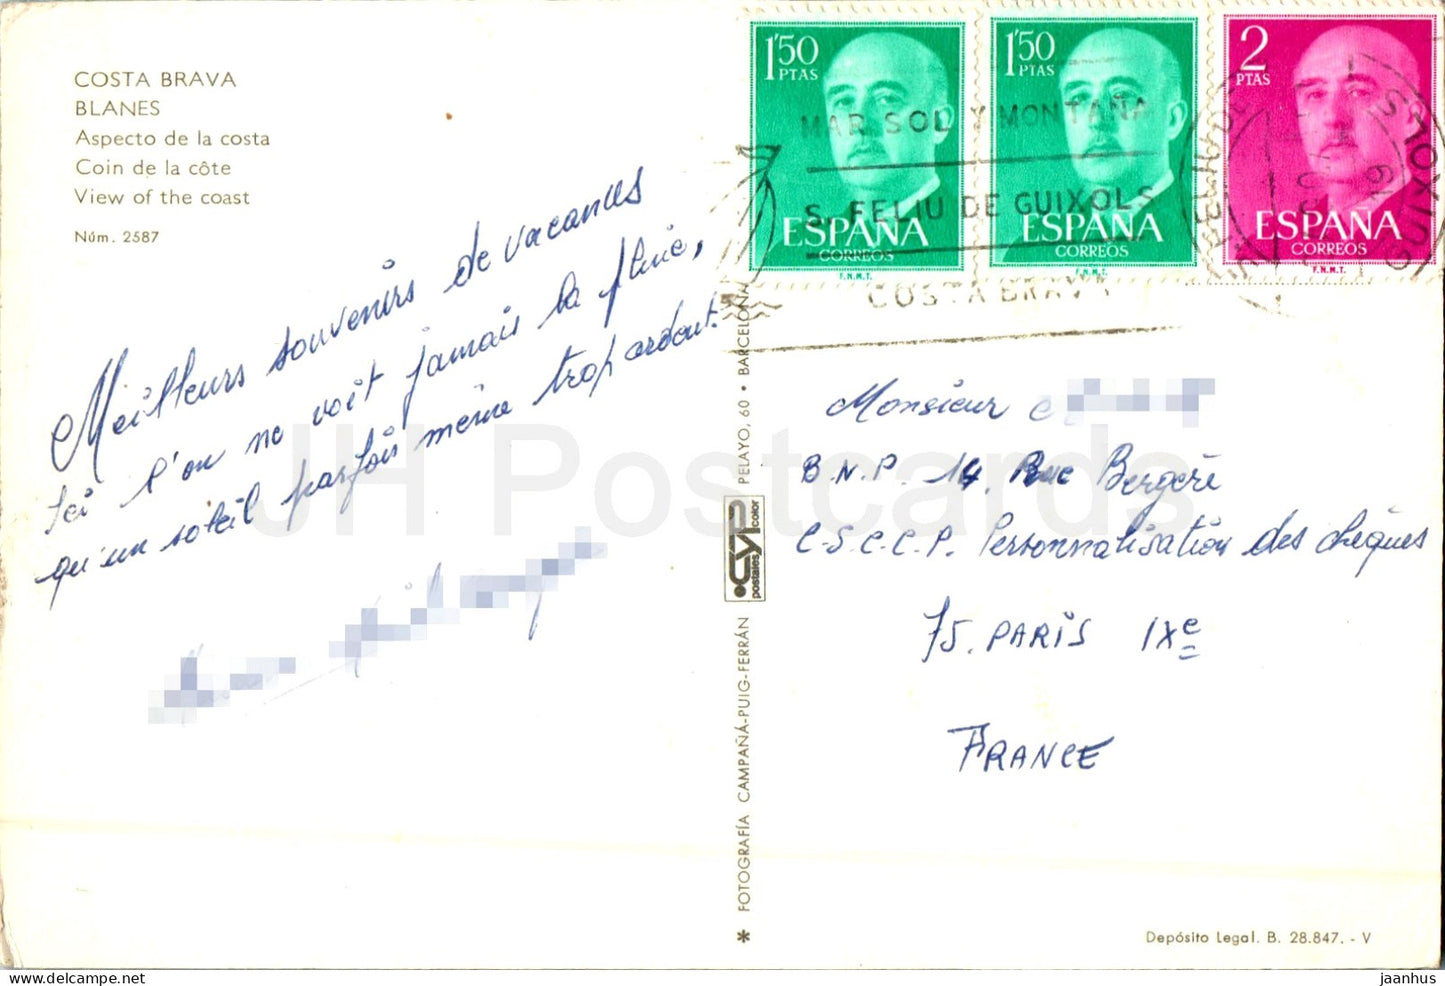 COSTA BRAVA
BLANES
Aspecto de la costa
Coin de la côte
View of the coast
Núm. 2587
Meilleurs souvenirs de vacances
Ici l'on ne voit jamais la pluie,
qu'un soleil parfois même trop ardent.
1'50 PTAS
ESPAÑA
CORREOS
F.N.M.T.
1'50 PTAS
ESPAÑA
CORREOS
F.N.M.T.
2 PTAS
ESPAÑA
CORREOS
F.N.M.T.
MAR SOL Y MONTAÑA
S. FELIU DE GUIXOLS
COSTA BRAVA
Monsieur
B.N.P. 14. Rue Bergère
C.S.C.C.P. Personnalisation des chèques
75. PARIS IXe
FRANCE
FOTOGRAFÍA CAMPAÑÁ-PUIG-FERRÁN
CYP
postales color
PELAYO, 60 • BARCELONA
Depósito Legal. B. 28.847. - V
JH Postcards
delcampe.net
jaanhus